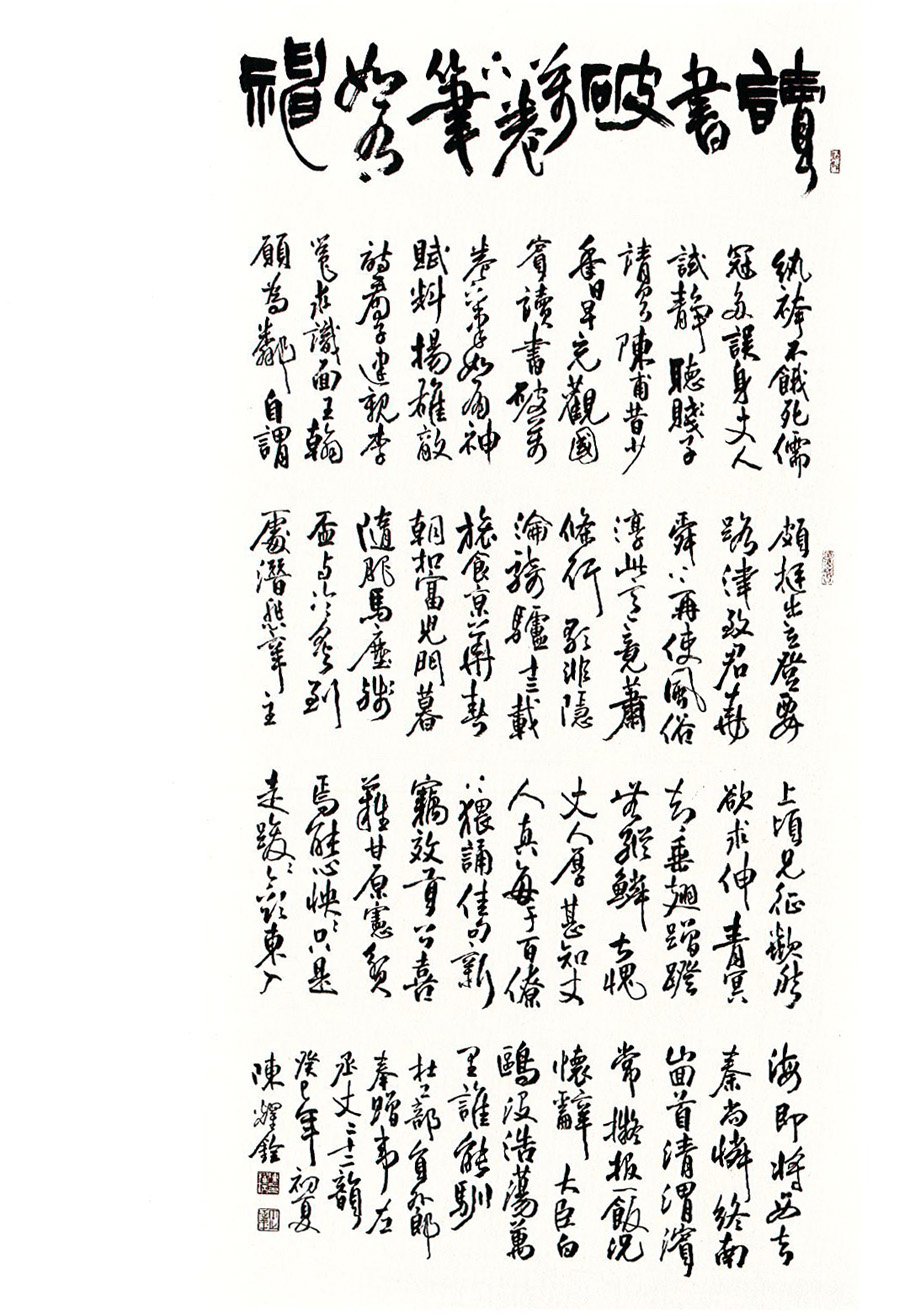 讀書破萬卷下筆如有神
紈袴不餓死儒
冠多誤身丈人
試靜聽賤子
請具陳甫昔少
年日早充觀國
賓讀書破萬
卷下筆如有神
賦料揚雄敵
詩看子建親李
邕求識面王翰
願為鄰自謂
頗挺出立登要
路津致君堯
舜上再使風俗
淳此意竟蕭
條行歌非隱
淪騎驢十三載
旅食京華春
朝扣富兒門暮
隨肥馬塵殘
盃與冷炙到
處潛悲辛主
上頃見征歘然
欲求伸青冥
却垂翅蹭蹬
無縱鱗甚愧
丈人厚甚知丈
人真每于百僚
上猥誦佳句新
竊效貢公喜
難甘原憲貧
焉能心怏怏只是
走踆踆今欲東入
海即將西去
秦尚憐終南
山回首清渭濱
常擬報一飯況
懷辭大臣白
鷗沒浩蕩萬
里誰能馴
杜工部員外郎
奉贈韋左
丞丈二十二韻
癸巳年初夏
陳耀銓